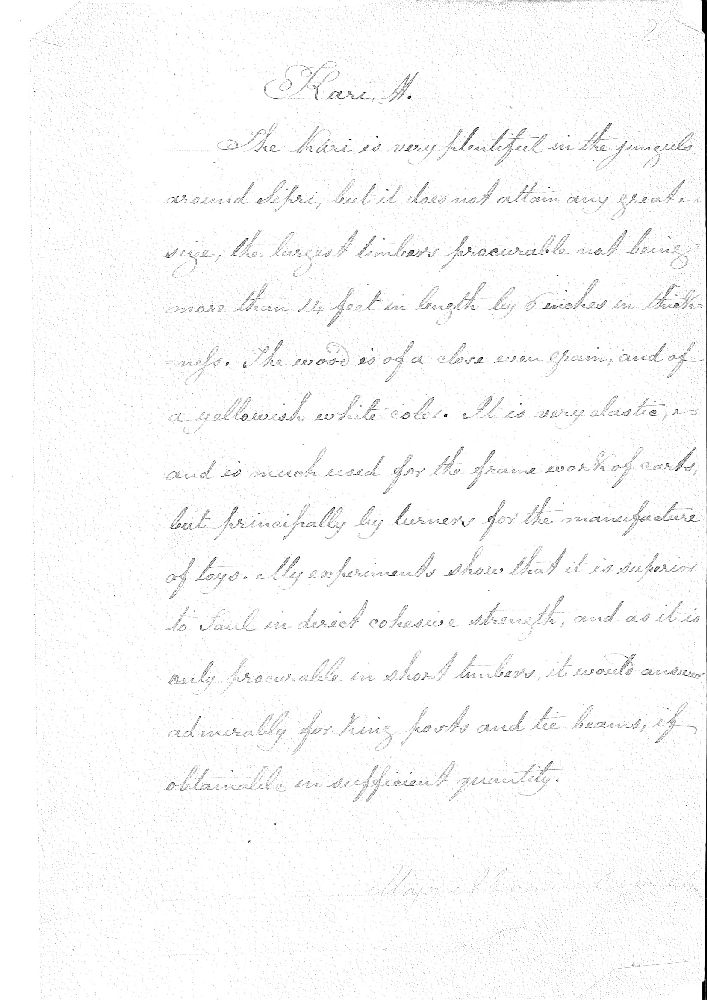 Kari, H.
The Kari is very plentiful in the junguls
around Sipri, but it does not attain any great
size, the largest timbers procurable not being
more than 14 feet in length by 6 inches in thick-
-ness. The wood is of a close even grain, and of
a yellowish white color. It is very elastic,
and is much used for the frame work of carts,
but principally by turners for the manufacture
of toys. My experiments show that it is superior
to Saul in direct cohesive strength, and as it is
only procurable in short timbers, it would answer
admirably for King posts and tie beams, if
obtainable in sufficient quantity.